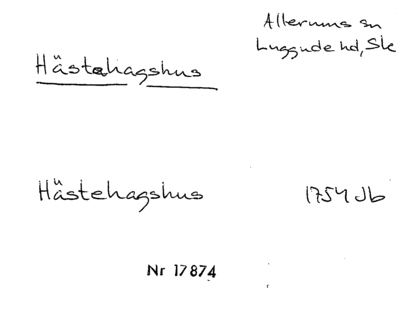 Allerums sn
Luggude hd, Sk
Hästehagshus
Hästehagshus 1754 Jb
Nr 17874